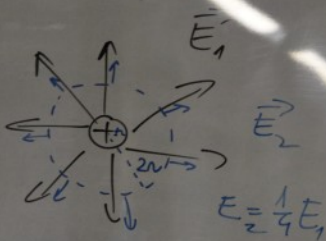 E⃗₁
+ r
2r
E⃗₂
E₂ = 1/4 E₁